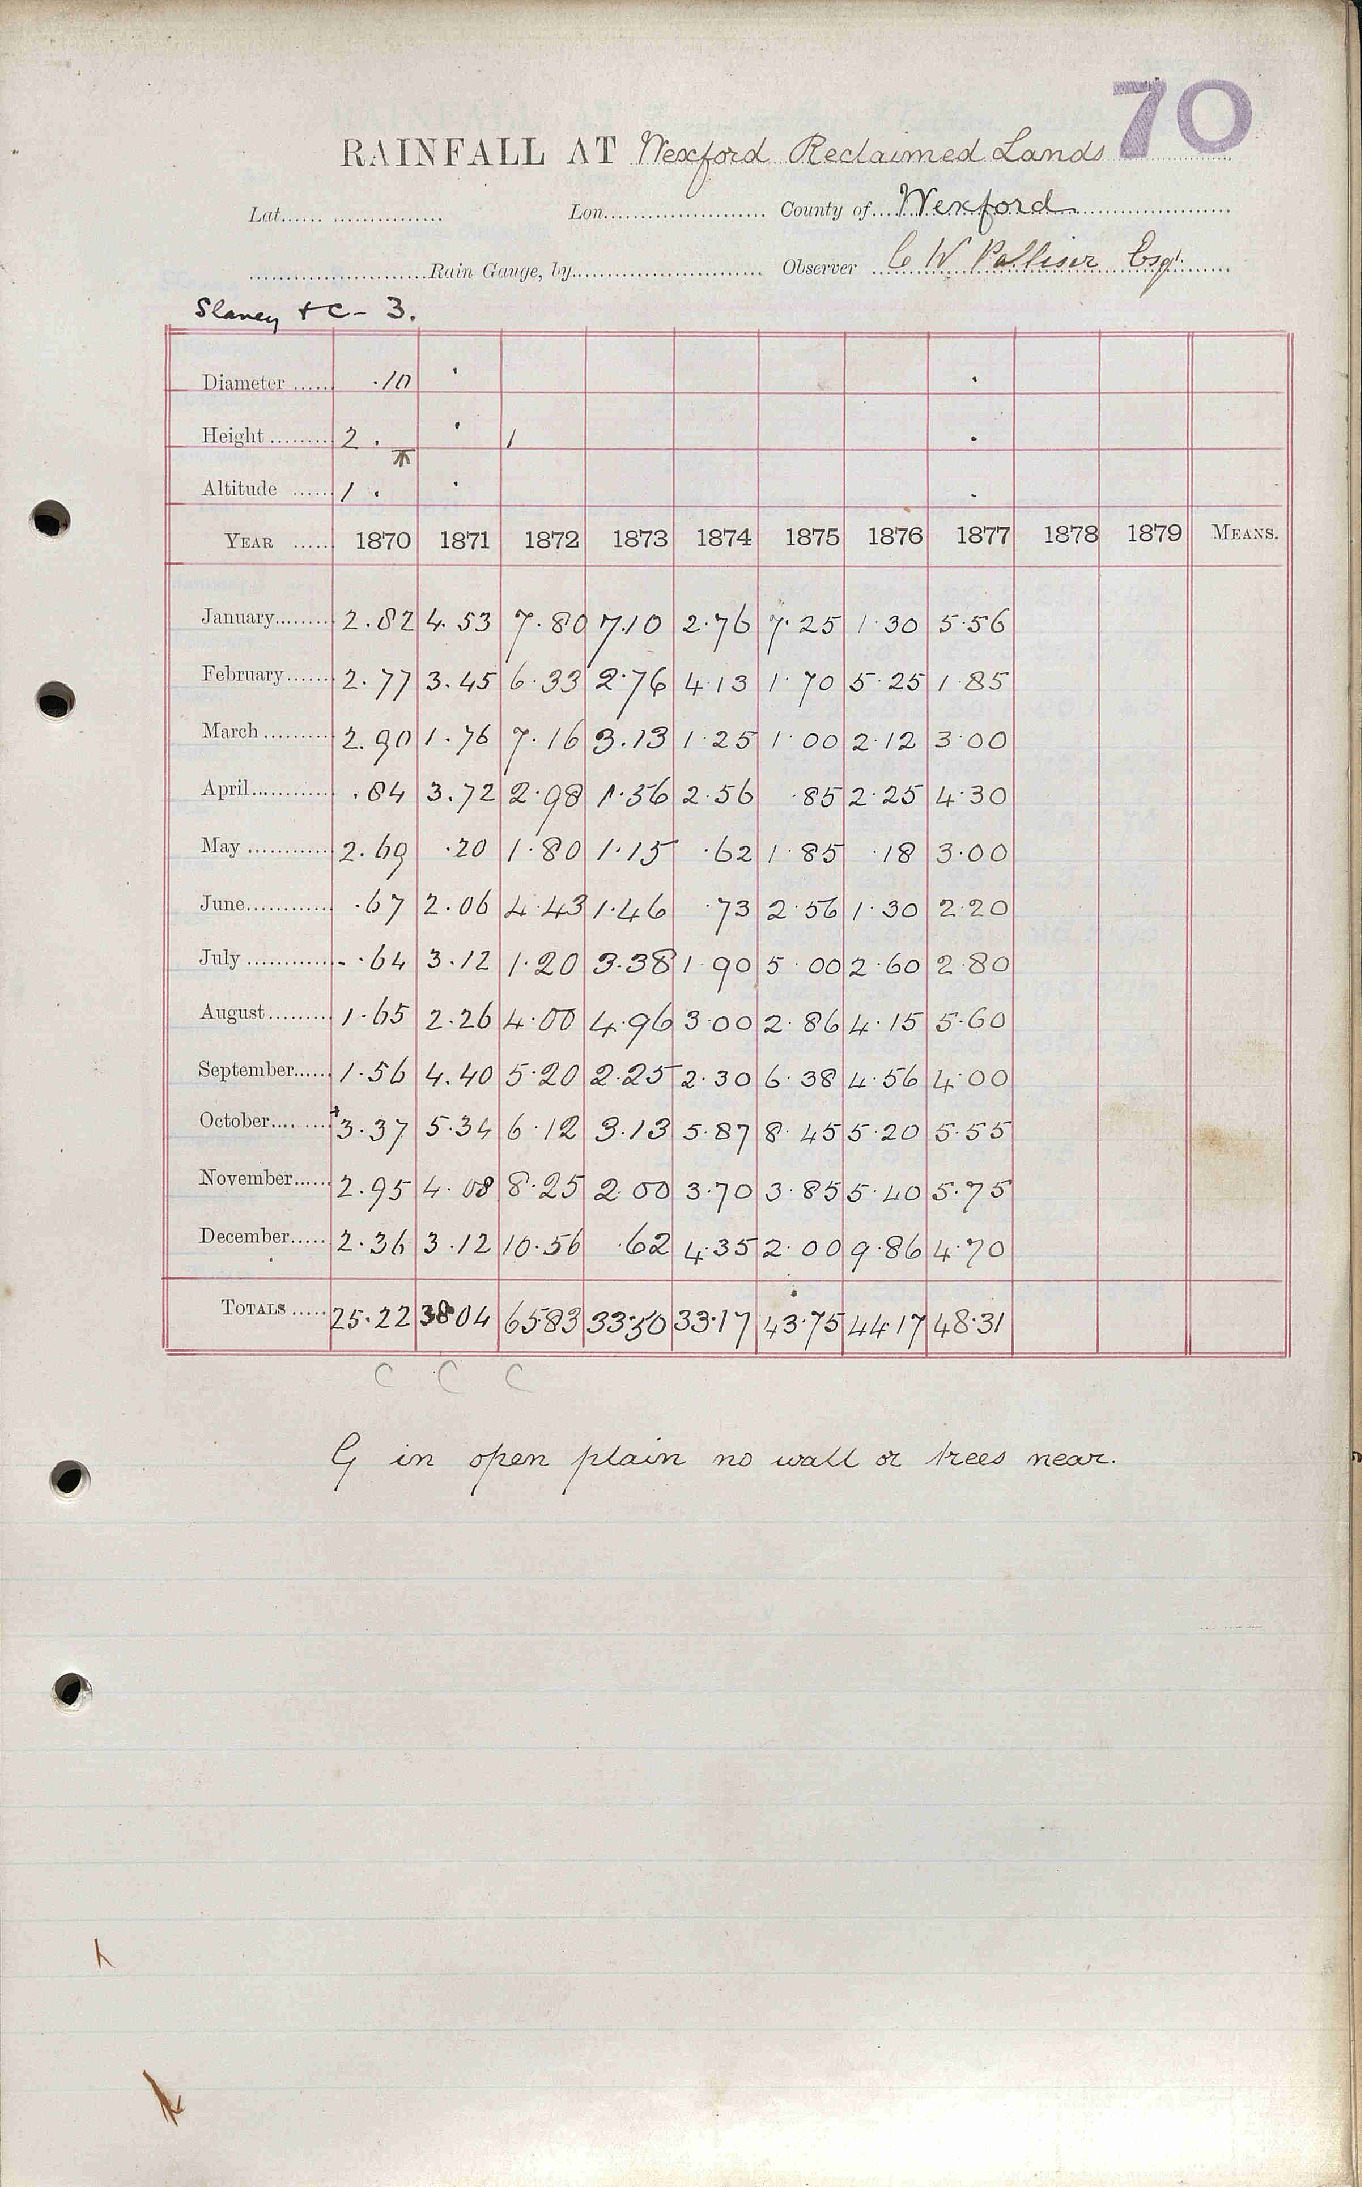 70
RAINFALL AT Wexford Reclaimed Lands
Lat. Lon. County of Wexford
Rain Gauge, by Observer C W Palliser Esqr.
Slaney + C - 3.
Diameter ·10 · ·
Height 2 . · 1 ·
Altitude 1 . · ·
YEAR 1870 1871 1872 1873 1874 1875 1876 1877 1878 1879 MEANS.
January 2.82 4.53 7.80 7.10 2.76 7.25 1.30 5.56
February 2.77 3.45 6.33 2.76 4.13 1.70 5.25 1.85
March 2.90 1.76 7.16 3.13 1.25 1.00 2.12 3.00
April .84 3.72 2.98 1.56 2.56 .85 2.25 4.30
May 2.69 .20 1.80 1.15 .62 1.85 .18 3.00
June .67 2.06 4.43 1.46 .73 2.56 1.30 2.20
July .64 3.12 1.20 3.38 1.90 5.00 2.60 2.80
August 1.65 2.26 4.00 4.96 3.00 2.86 4.15 5.60
September 1.56 4.40 5.20 2.25 2.30 6.38 4.56 4.00
October +3.37 5.34 6.12 3.13 5.87 8.45 5.20 5.55
November 2.95 4.08 8.25 2.00 3.70 3.85 5.40 5.75
December 2.36 3.12 10.56 .62 4.35 2.00 9.86 4.70
TOTALS 25.22 38.04 65.83 33.50 33.17 43.75 44.17 48.31
C C C
G in open plain no wall or trees near.